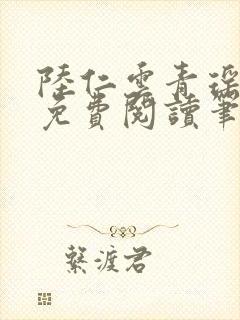 陸仁雲青瑤
免費閱讀筆
繫渡君